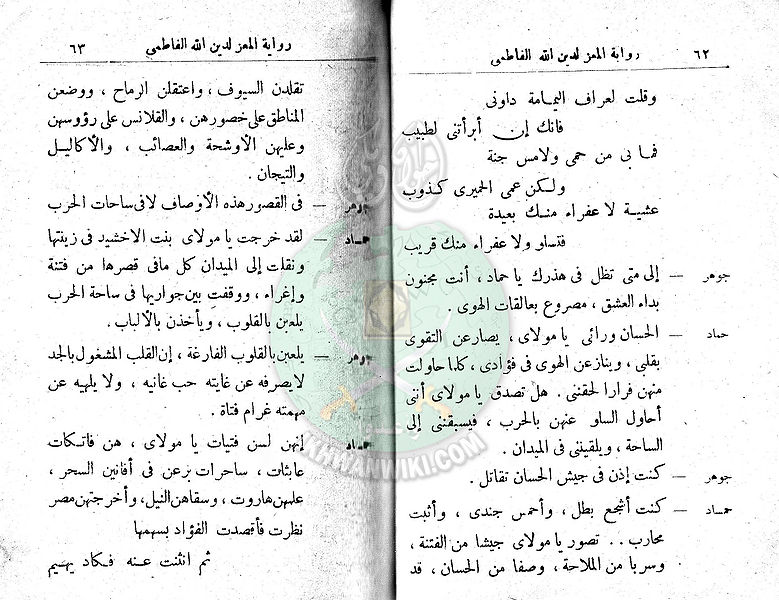 ٦٢
رواية المعز لدين الله الفاطمى
وقلت لعراف اليمامة داونى
فانك إن أبرأتنى لطبيب
فما بى من حمى ولامس جنة
ولكن عمى الحميرى كذوب
عشية لا عفراء منك بعيدة
فتسلو ولا عفراء منك قريب
جوهر — إلى متى تظل فى هذرك يا حماد، أنت مجنون
بداء العشق، مصروع بعالقات الهوى.
حماد — الحسان ورائى يا مولاى، يصارعن التقوى
بقلبى، وينازعن الهوى فى فؤادى، كلما حاولت
منهن فرارا لحقننى. هل تصدق يا مولاى أننى
أحاول السلو عنهن بالحرب، فيسبقننى إلى
الساحة، ويلقيننى فى الميدان.
جوهر — كنت إذن فى جيش الحسان تقاتل.
حماد — كنت أشجع بطل، وأحمس جندى، وأثبت
محارب.. تصور يا مولاى جيشا من الفتنة،
وسربا من الملاحة، وصفا من الحسان، قد
رواية المعز لدين الله الفاطمى
٦٣
تقلدن السيوف، واعتقلن الرماح، ووضعن
المناطق على خصورهن، والقلانس على رؤوسهن
وعليهن الأوشحة والعصائب، والأكاليل
والتيجان.
جوهر — فى القصور هذه الأوصاف لا فى ساحات الحرب
حماد — لقد خرجت يا مولاى بنت الاخشيد فى زينتها
ونقلت إلى الميدان كل مافى قصرها من فتنة
وإغراء، ووقفت بين جواريها فى ساحة الحرب
يلعبن بالقلوب، ويأخذن بالألباب.
جوهر — يلعبن بالقلوب الفارغة، إن القلب المشغول بالجد
لا يصرفه عن غايته حب غانيه، ولا يلهيه عن
مهمته غرام فتاة.
حماد — إنهن لسن فتيات يا مولاى، هن فاتكات
عابثات، ساحرات برعن فى أفانين السحر،
علمهن هاروت، وسقاهن النيل، وأخرجتهن مصر
نظرت فأقصدت الفؤاد بسهمها
ثم انثنت عنه فكاد يهيم
KHWANWIKI.COM